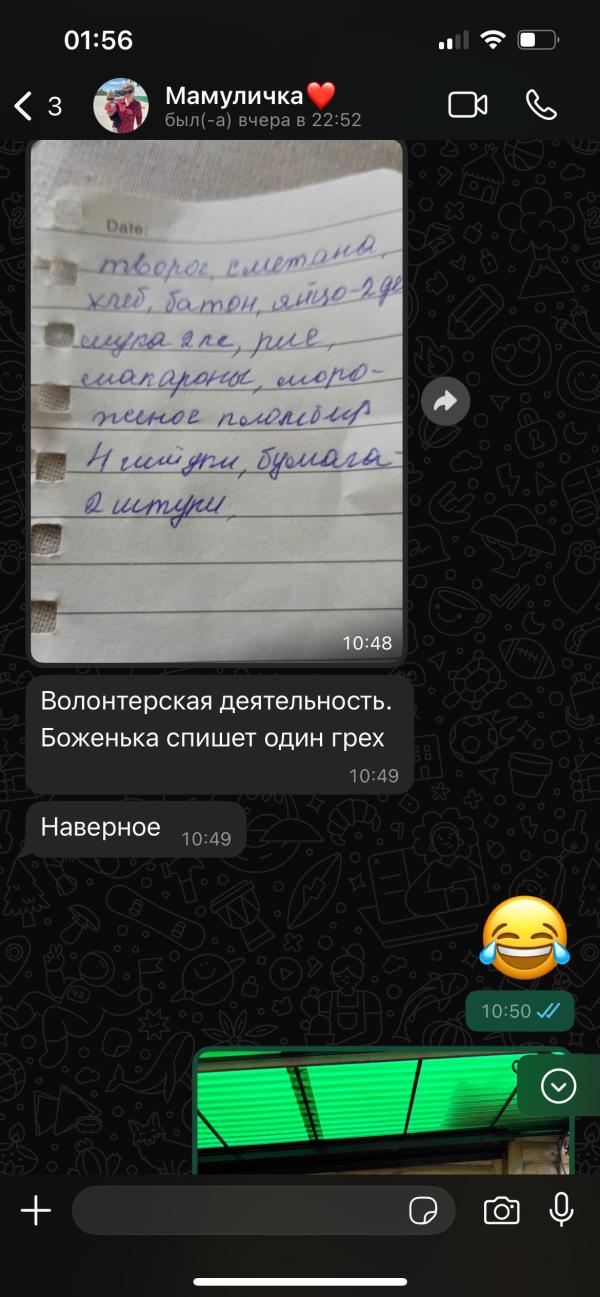 01:56
3
Мамуличка❤️
был(-а) вчера в 22:52
Date:
творог, сметана,
хлеб, батон, яйцо-2де
мука 2пс, рис,
макароны, моро-
женое пломбир
4 штуки, бумага-
2 штуки,
10:48
Волонтерская деятельность.
Боженька спишет один грех
10:49
Наверное
10:49
😂
10:50